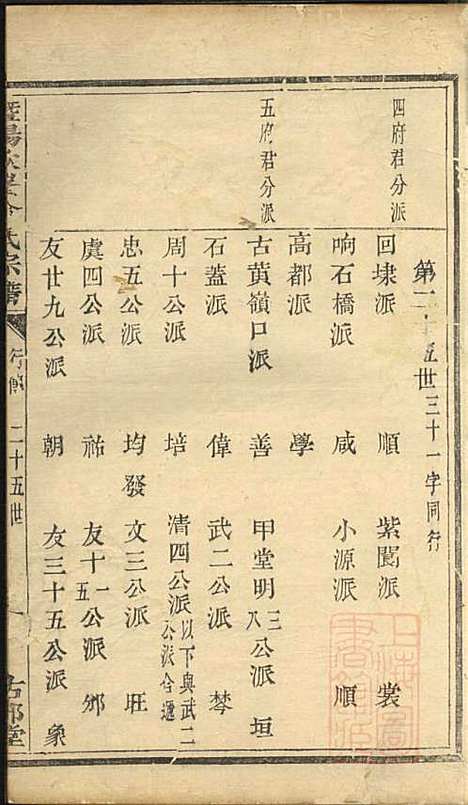 第二十五世三十一字同行
四府君分派
回埭派 順 紫閬派 裳
响石橋派 咸 小源派 順
高都派 學
五府君分派
古黄嶺口派 善 甲堂明三八公派 垣
石蓋派 偉 武二公派 棽
周十公派 培 清四公派以下與武二公派合遞
忠五公派 均發 文三公派 旺
虞四公派 祐 友十一五公派 鄉
友廿九公派 朝 友三十五公派 象
暨陽 氏宗譜 行傳 二十五世 一